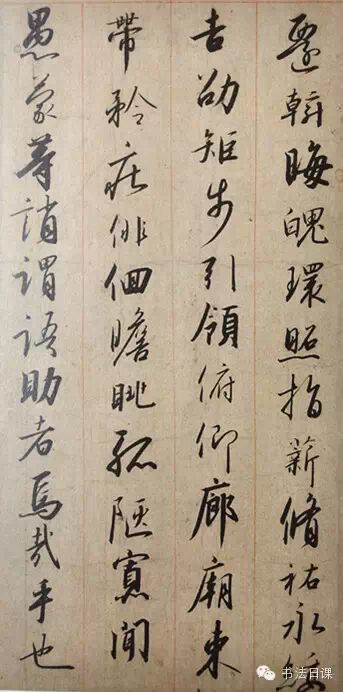 遷斡晦魄環照指薪脩祐永綏
吉劭矩步引領俯仰廊廟束
帶矜莊俳佪瞻眺孤陋寡聞
愚蒙等誚謂語助者焉哉乎也
书法日课